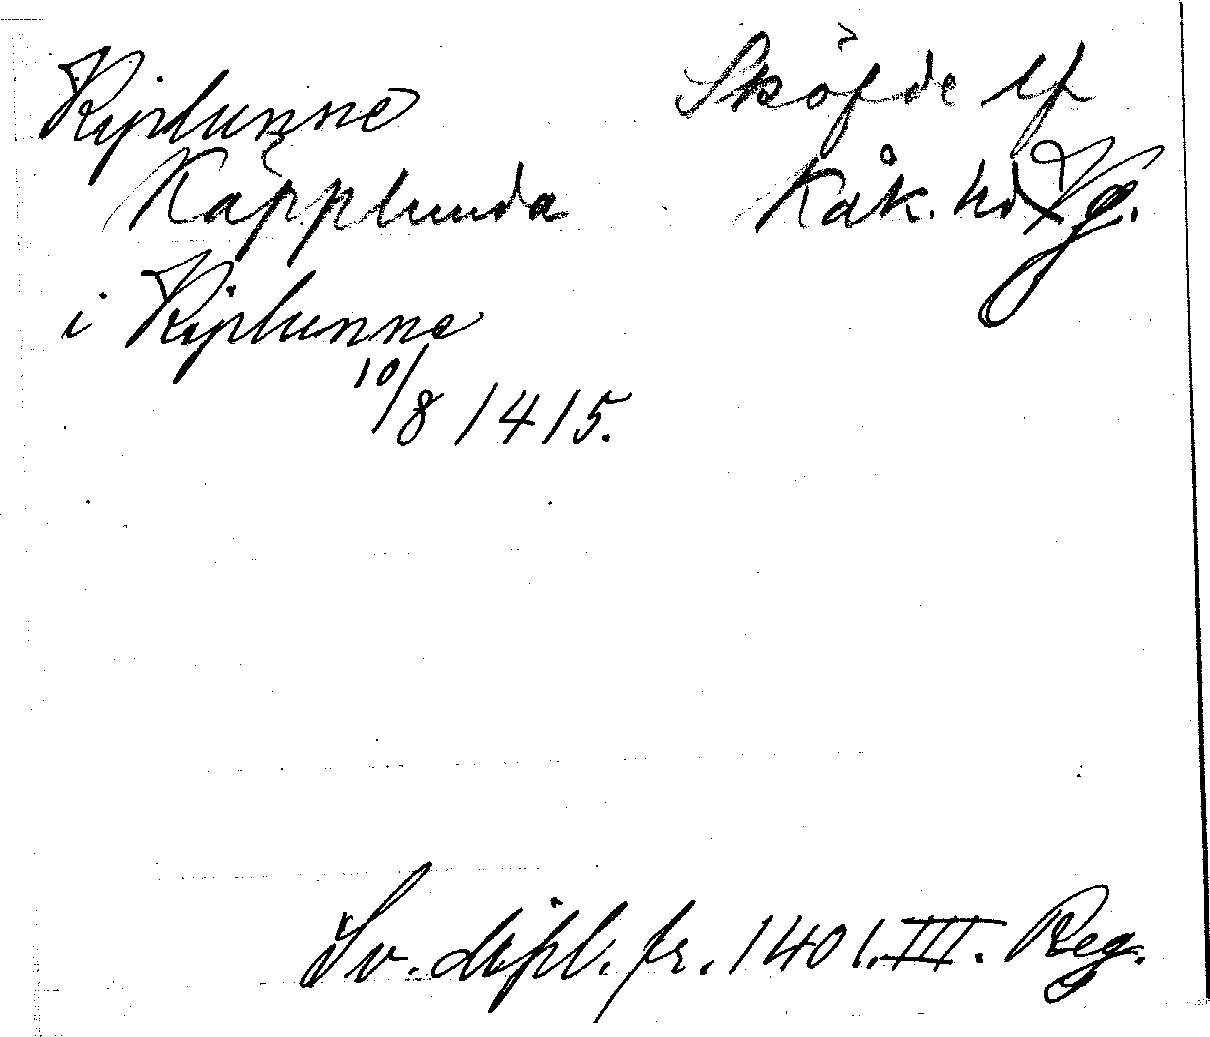 Kiplunne Sköfde lf
Käpplunda Kåk. hd Vg.
i Kiplunne
10/8 1415.
Sv. dipl. fr. 1401. III. Reg.